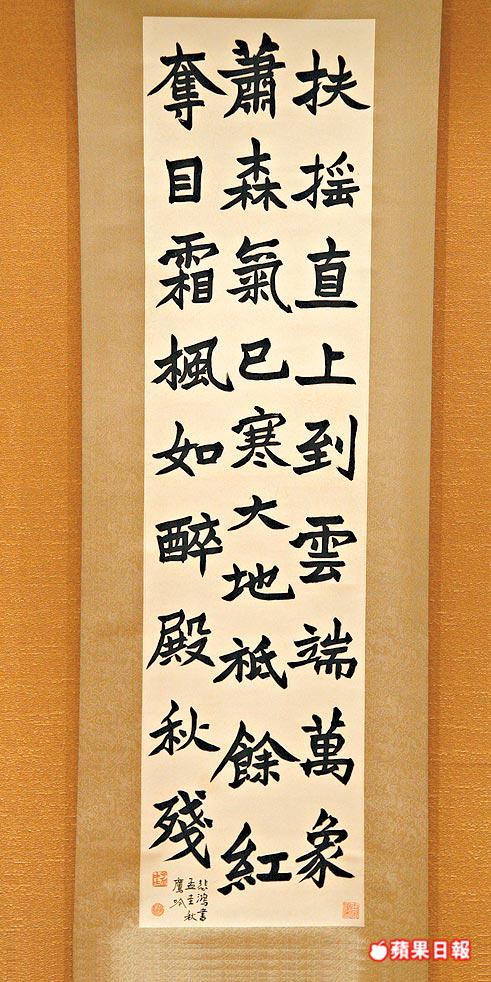 扶搖直上到雲端萬象
蕭森氣已寒大地祗餘紅
奪目霜楓如醉殿秋殘
悲鴻書
孟圭秋
鷹
蘋果日報